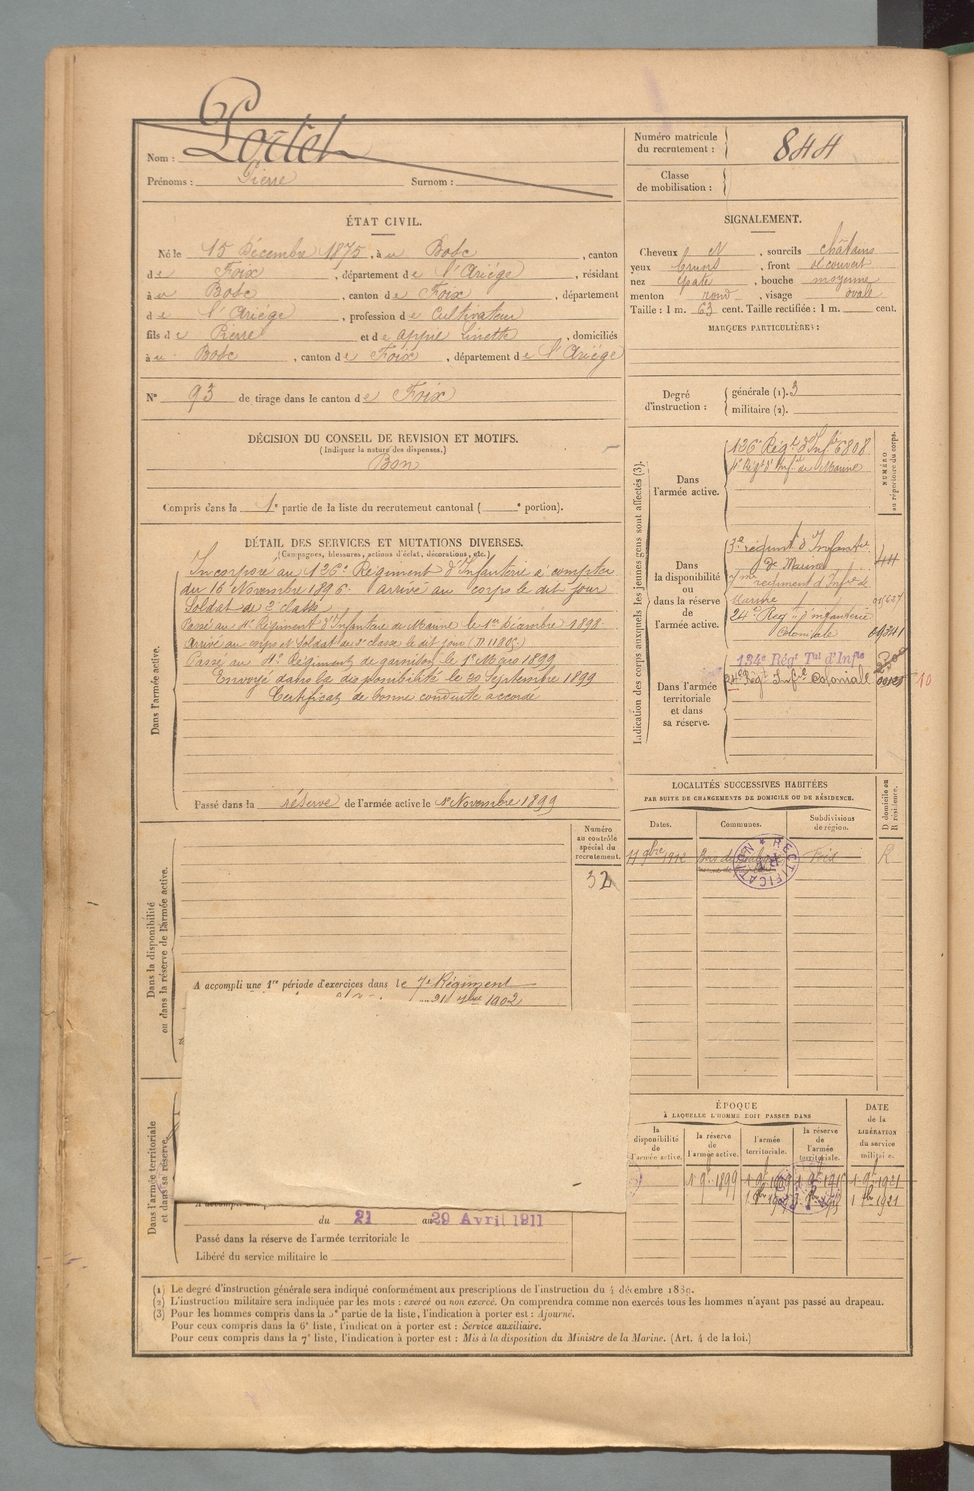 Nom : Portet
Prénoms : Pierre Surnom :
Numéro matricule du recrutement : 844
Classe de mobilisation :
ÉTAT CIVIL.
Né le 15 Décembre 1875, à u Bosc, canton
de Foix, département de l'Ariége, résidant
à u Bosc, canton de Foix, département
de l'Ariége, profession de Cultivateur
fils de Pierre et de Linette, domiciliés
à u Bosc, canton de Foix, département de l'Ariége
N° 93 de tirage dans le canton de Foix
SIGNALEMENT.
Cheveux N, sourcils châtains
yeux, front découvert
nez, bouche moyenne
menton rond, visage ovale
Taille : 1 m. 63 cent. Taille rectifiée : 1 m. cent.
MARQUES PARTICULIÈRES :
Degré d'instruction :
générale (1). 3
militaire (2).
DÉCISION DU CONSEIL DE REVISION ET MOTIFS.
(Indiquer la nature des dispenses.)
Bon
Compris dans la 1e partie de la liste du recrutement cantonal ( e portion).
DÉTAIL DES SERVICES ET MUTATIONS DIVERSES.
(Campagnes, blessures, actions d'éclat, décorations, etc.)
Dans l'armée active.
Incorporé au 126e Régiment d'Infanterie à compter
du 16 Novembre 1896. arrivé au corps le dit jour
Soldat de 2e classe
Passé au 4e Régiment d'Infanterie de Marine le 1er Décembre 1898.
Arrivé au corps et Soldat de 2e classe le dit jour
Passé au Régiment de garnison le 1er Mars 1899
Envoyé dans la disponibilité le 30 Septembre 1899
Certificat de bonne conduite accordé
Passé dans la réserve de l'armée active le 1er Novembre 1899
Indication des corps auxquels les jeunes gens sont affectés (3).
NUMÉRO au répertoire du corps.
Dans l'armée active.
126e Régt d'Infie 6808
4e Régt d'Infie de Marine
Dans la disponibilité ou dans la réserve de l'armée active.
régiment d'Infanterie
de Marine 44
régiment d'Infie de
Marine
24e Régt d'infanterie
Coloniale
Dans l'armée territoriale et dans sa réserve.
134e Régt Tal d'Infie
24e Régt Infie Colonial
Dans la disponibilité ou dans la réserve de l'armée active.
Numéro au contrôle spécial du recrutement.
32
A accompli une 1re période d'exercices dans le 7e Régiment
1902
LOCALITÉS SUCCESSIVES HABITÉES
PAR SUITE DE CHANGEMENTS DE DOMICILE OU DE RÉSIDENCE.
Dates. Communes. Subdivisions de région. D domicile ou R résidence.
11 9bre 1912 Foix R
RECTIFICATION
Dans l'armée territoriale et dans sa réserve.
du 21 au 29 Avril 1911
Passé dans la réserve de l'armée territoriale le
Libéré du service militaire le
ÉPOQUE
À LAQUELLE L'HOMME DOIT PASSER DANS
la disponibilité de l'armée active.
la réserve de l'armée active.
l'armée territoriale.
la réserve de l'armée territoriale.
DATE de la LIBÉRATION du service militaire.
1 9bre 1899
(1) Le degré d'instruction générale sera indiqué conformément aux prescriptions de l'instruction du 4 décembre 1889.
(2) L'instruction militaire sera indiquée par les mots : exercé ou non exercé. On comprendra comme non exercés tous les hommes n'ayant pas passé au drapeau.
(3) Pour les hommes compris dans la 5e partie de la liste, l'indication à porter est : Ajourné.
Pour ceux compris dans la 6e liste, l'indication à porter est : Service auxiliaire.
Pour ceux compris dans la 7e liste, l'indication à porter est : Mis à la disposition du Ministre de la Marine. (Art. 4 de la loi.)